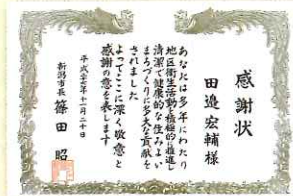 感謝状
田邉宏輔様
あなたは多年にわたり
地区衛生活動を積極的に推進し
清潔で健康的な住みよい
まちづくりに多大な貢献を
されました
よってここに深く敬意と
感謝の意を表します
平成二十七年十一月二十日
新潟市長 篠田 昭